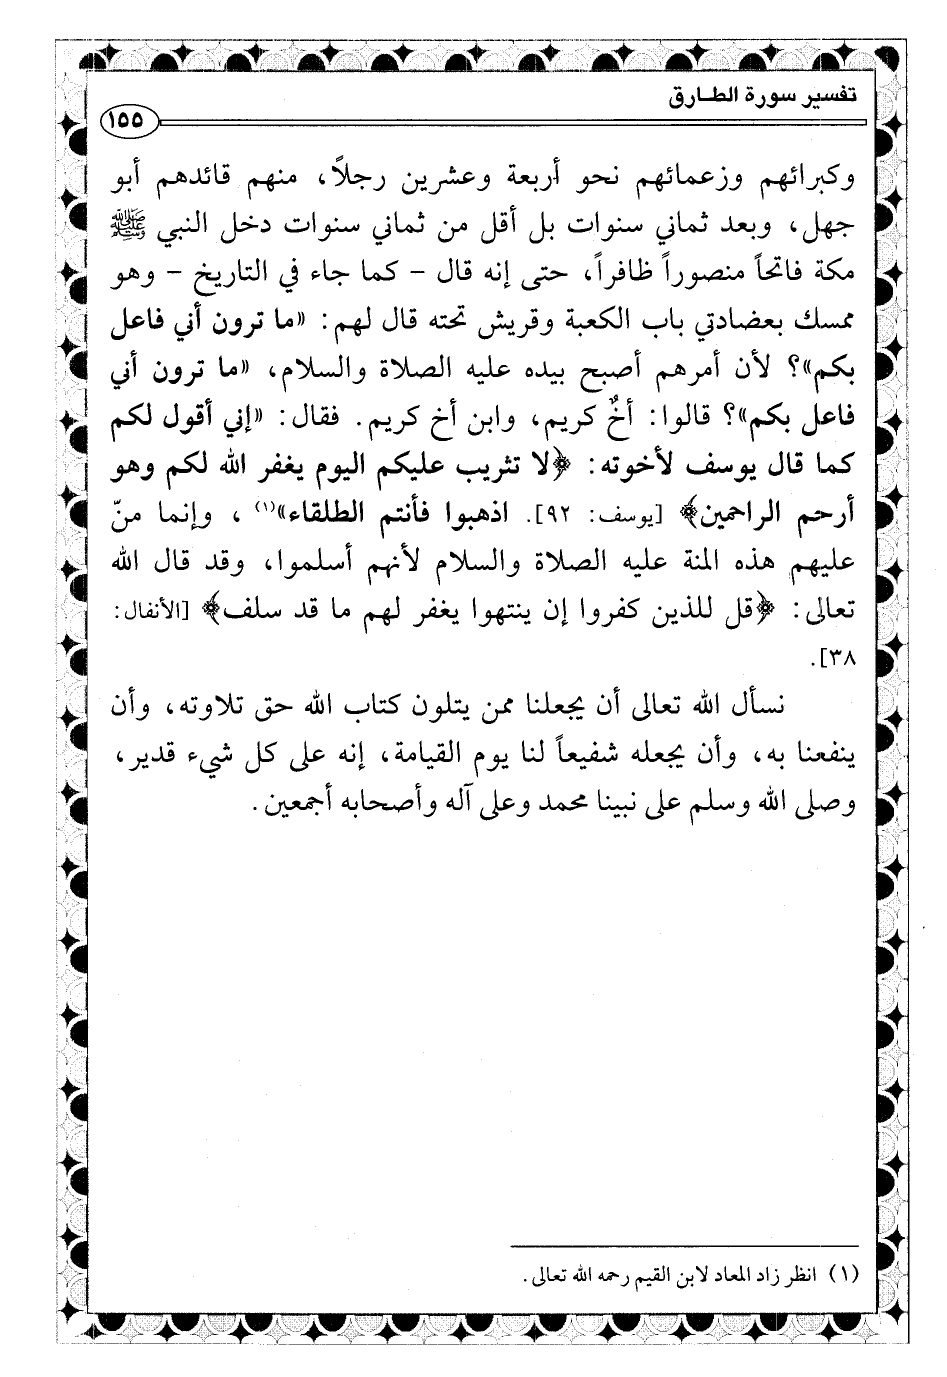 تفسير سورة الطارق
١٥٥
وكبرائهم وزعمائهم نحو أربعة وعشرين رجلاً، منهم قائدهم أبو
جهل، وبعد ثماني سنوات بل أقل من ثماني سنوات دخل النبي ﷺ
مكة فاتحاً منصوراً ظافراً، حتى إنه قال – كما جاء في التاريخ – وهو
ممسك بعضادتي باب الكعبة وقريش تحته قال لهم: «ما ترون أني فاعل
بكم»؟ لأن أمرهم أصبح بيده عليه الصلاة والسلام، «ما ترون أني
فاعل بكم»؟ قالوا: أخٌ كريم، وابن أخ كريم. فقال: «إني أقول لكم
كما قال يوسف لأخوته: ﴿لا تثريب عليكم اليوم يغفر الله لكم وهو
أرحم الراحمين﴾ [يوسف: ٩٢]. اذهبوا فأنتم الطلقاء»(١)، وإنما منّ
عليهم هذه المنة عليه الصلاة والسلام لأنهم أسلموا، وقد قال الله
تعالى: ﴿قل للذين كفروا إن ينتهوا يغفر لهم ما قد سلف﴾ [الأنفال:
٣٨].
نسأل الله تعالى أن يجعلنا ممن يتلون كتاب الله حق تلاوته، وأن
ينفعنا به، وأن يجعله شفيعاً لنا يوم القيامة، إنه على كل شيء قدير،
وصلى الله وسلم على نبينا محمد وعلى آله وأصحابه أجمعين.
(١) انظر زاد المعاد لابن القيم رحمه الله تعالى.